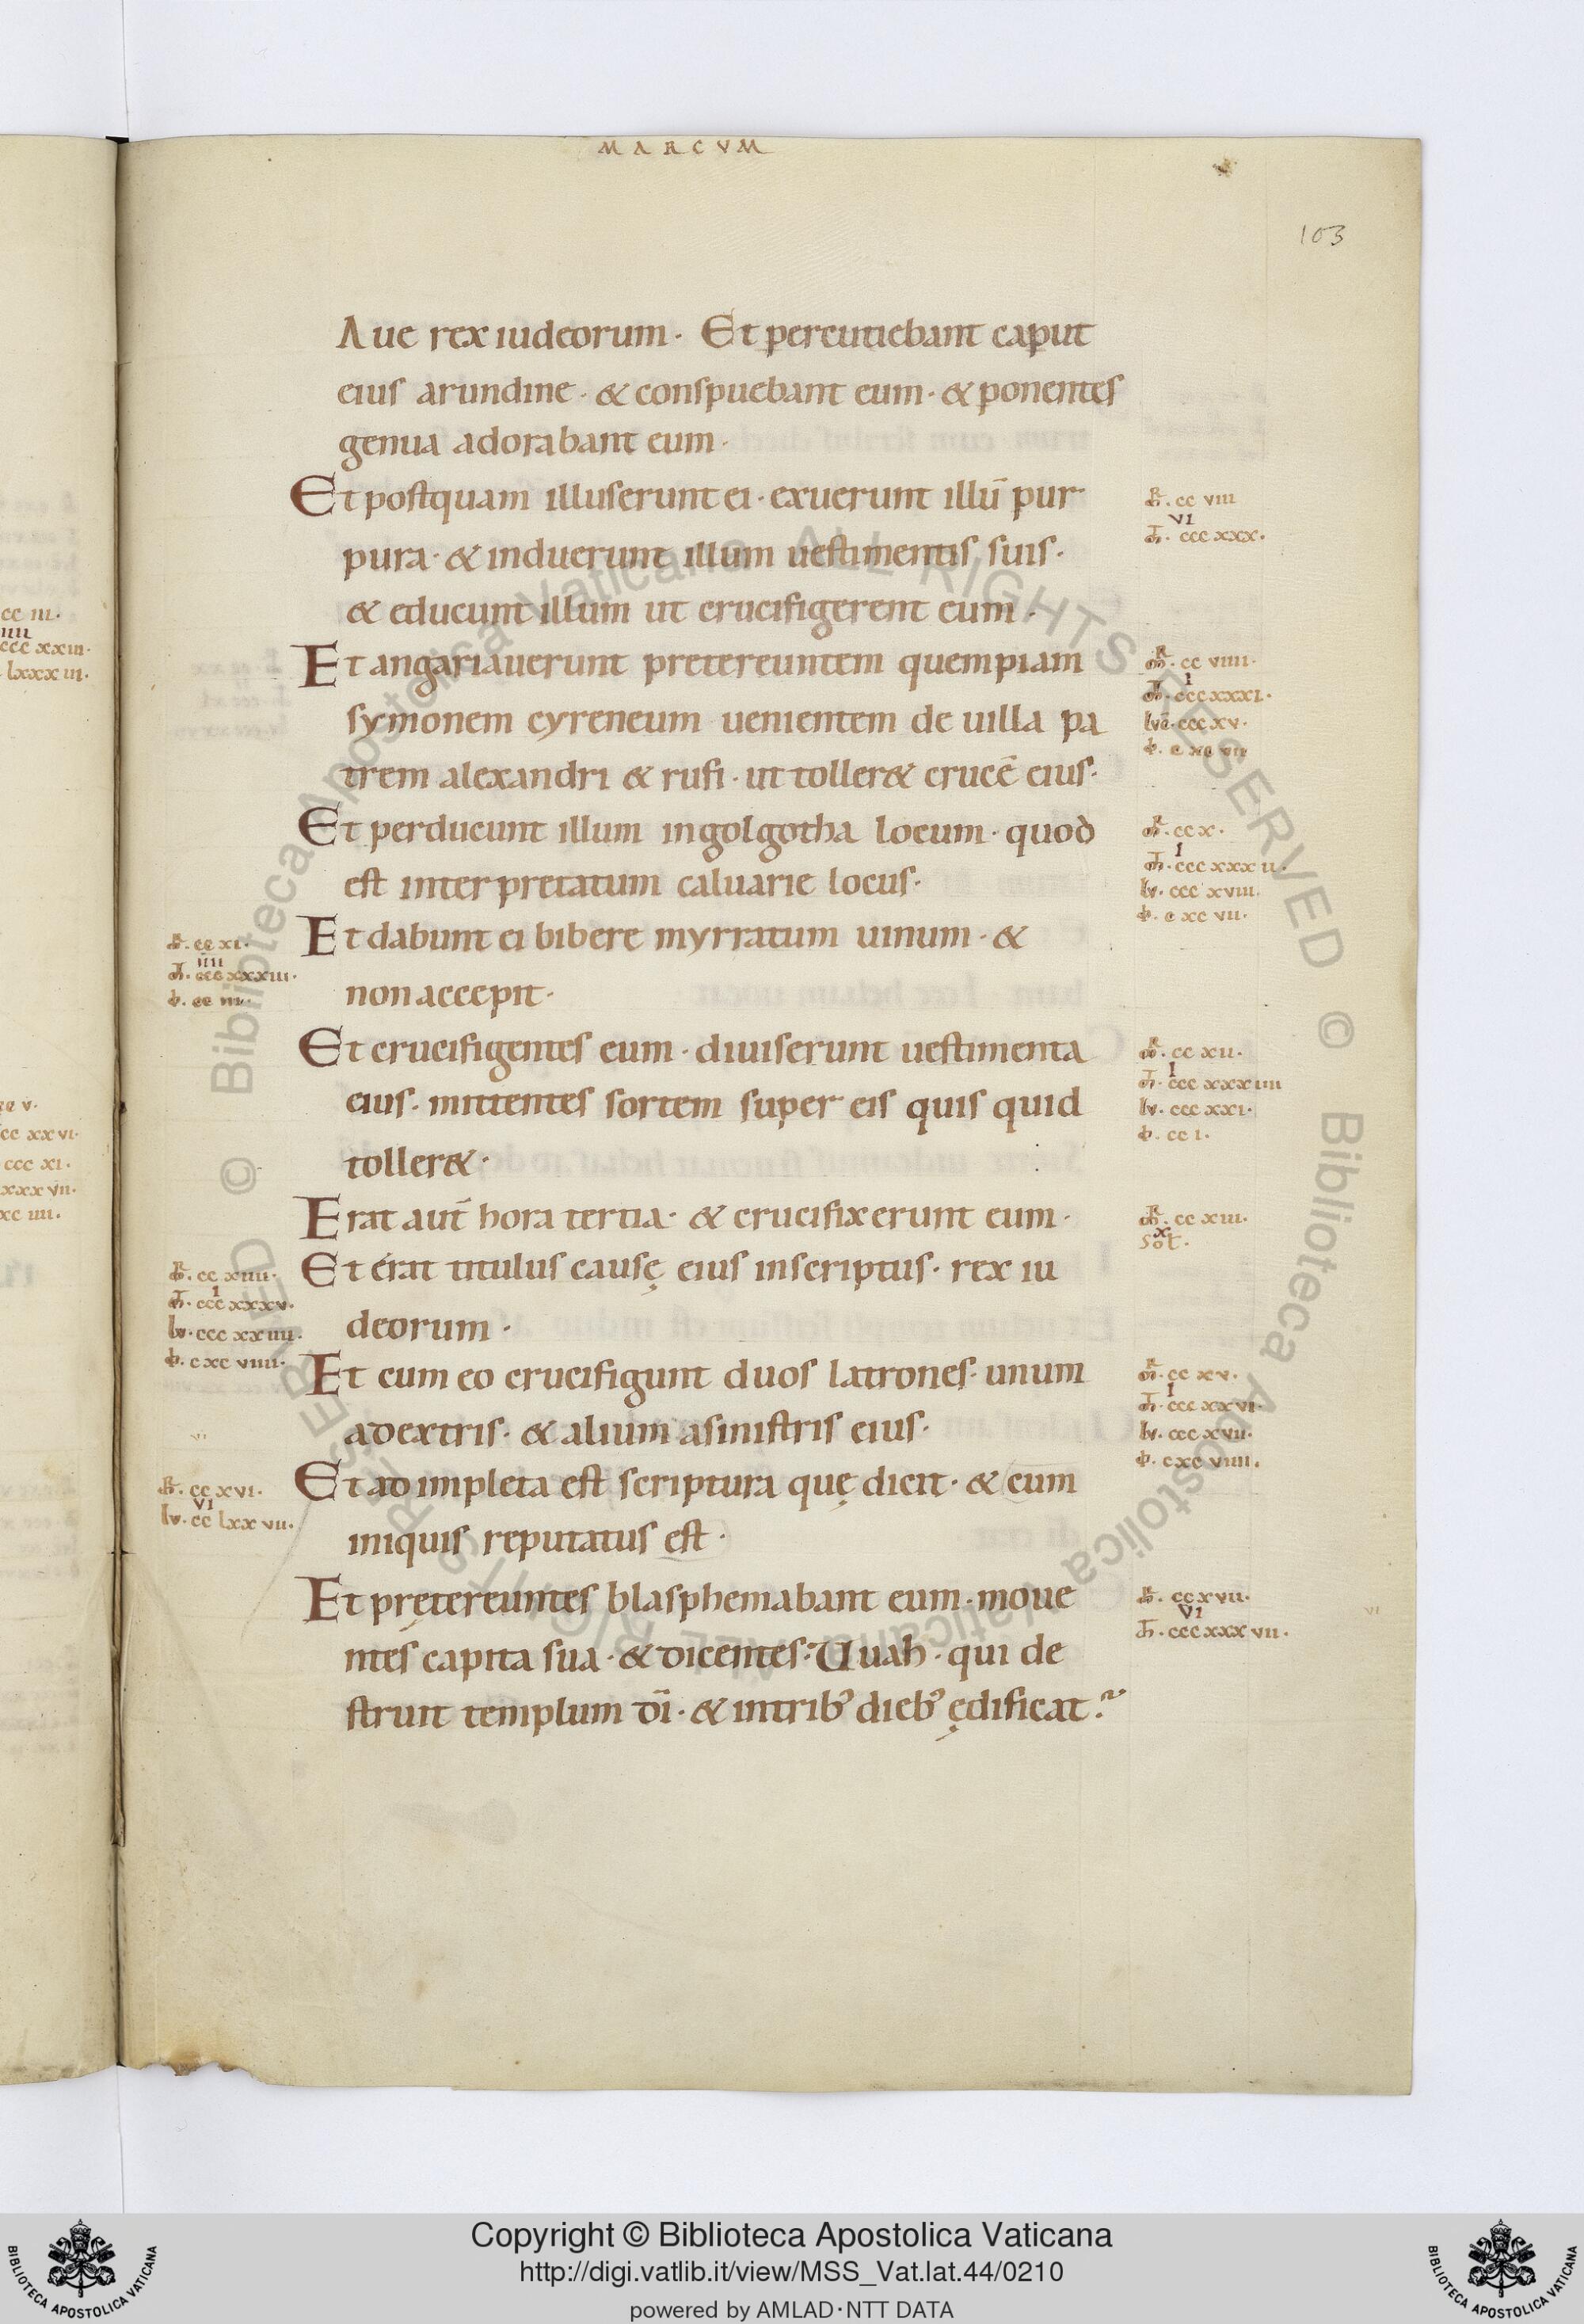 MARCVM
103
Aue rex iudeorum · Et percutiebant caput
eius arundine · & conspuebant eum · & ponentes
genua adorabant eum ·
Et postquam illuserunt ei · exuerunt illū pur
pura · & induerunt illum uestimentis suis ·
& educunt illum ut crucifigerent eum ·
Et angariauerunt pretereuntem quempiam
symonem cyreneum uenientem de uilla pa
trem alexandri & rufi · ut toller& crucē eius ·
Et perducunt illum in golgotha locum · quod
est interpretatum caluarie locus ·
Et dabunt ei bibere myrratum uinum · &
non accepit ·
Et crucifigentes eum · diuiserunt uestimenta
eius · mittentes sortem super eis quis quid
toller& ·
Erat aut̄ hora tertia · & crucifixerunt eum ·
Et erat titulus causę eius inscriptus · rex iu
deorum ·
Et cum eo crucifigunt duos latrones · unum
adextris · & alium asinistris eius ·
Et adimpleta est scriptura quę dicit · & cum
iniquis reputatus est ·
Et pretereuntes blasphemabant eum · moue
ntes capita sua · & dicentes · Uuah · qui de
struit templum dī · & in trib; dieb; ędificat ·
cc viii
vi
ccc xxx ·
cc viiii ·
i
ccc xxxi ·
ccc xv ·
c xc vii
cc x ·
i
ccc xxx ii ·
lv · ccc xviii ·
c xc vii ·
cc xi ·
iiii
ccc xxxiii ·
cc xii ·
i
ccc xxx iiii
lv · ccc xxi ·
cc i ·
cc xiii ·
x
cc xiiii ·
i
ccc xxxv ·
lv · ccc xx iiii ·
c xc viiii ·
cc xv ·
i
ccc xxx vi ·
lv · ccc xvii ·
c xc viiii ·
cc xvi ·
vi
lv · cc lxx vii ·
cc xvii ·
vi
ccc xxx vii ·
© Biblioteca Apostolica Vaticana ALL RIGHTS RESERVED
© Biblioteca Apostolica Vaticana ALL RIGHTS RESERVED
Copyright © Biblioteca Apostolica Vaticana
http://digi.vatlib.it/view/MSS_Vat.lat.44/0210
powered by AMLAD·NTT DATA
BIBLIOTECA APOSTOLICA VATICANA
BIBLIOTECA APOSTOLICA VATICANA